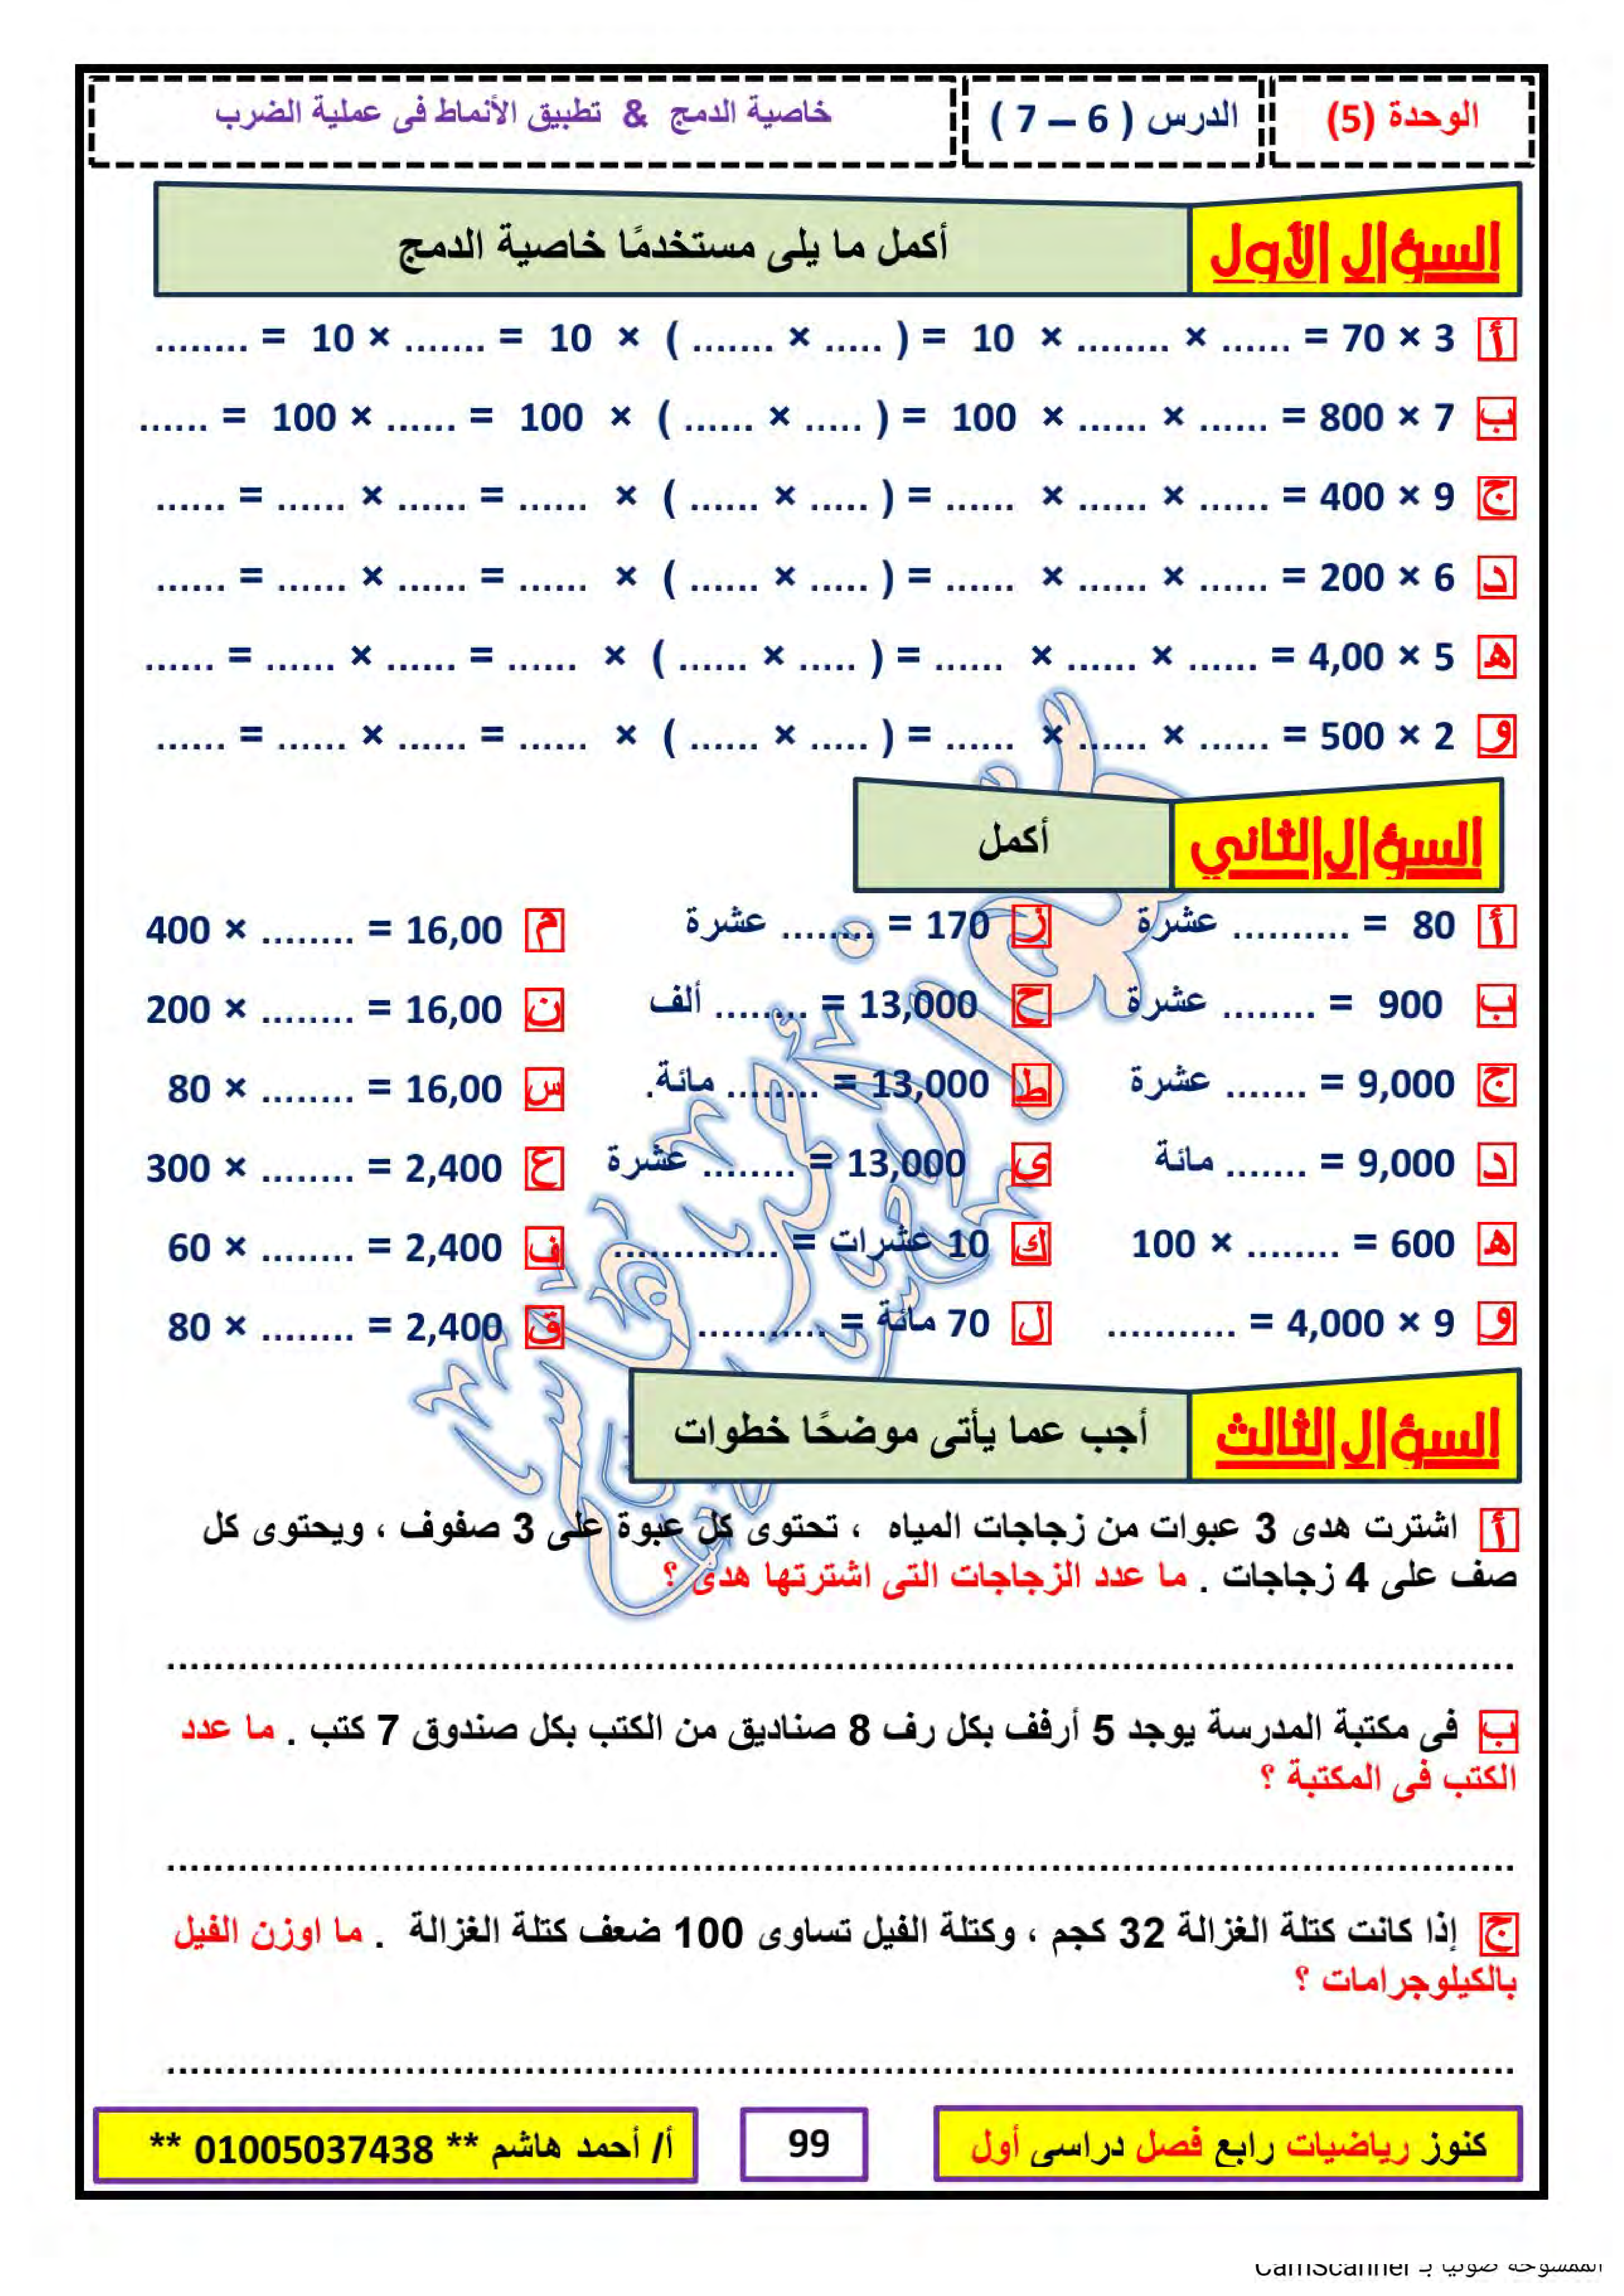 الوحدة (5)
الدرس ( 6 – 7 )
خاصية الدمج & تطبيق الأنماط فى عملية الضرب
السؤال الأول
أكمل ما يلى مستخدمًا خاصية الدمج
أ 3 × 70 = ...... × ........ × 10 = ( ..... × ....... ) × 10 = ....... × 10 = ........
ب 7 × 800 = ...... × ...... × 100 = ( ..... × ...... ) × 100 = ...... × 100 = ......
ج 9 × 400 = ...... × ...... × ...... = ( ..... × ...... ) × ...... = ...... × ...... = ......
د 6 × 200 = ...... × ...... × ...... = ( ..... × ...... ) × ...... = ...... × ...... = ......
هـ 5 × 4,00 = ...... × ...... × ...... = ( ..... × ...... ) × ...... = ...... × ...... = ......
و 2 × 500 = ...... × ...... × ...... = ( ..... × ...... ) × ...... = ...... × ...... = ......
السؤال الثاني
أكمل
أ 80 = .......... عشرة
ب 900 = ........ عشرة
ج 9,000 = ....... عشرة
د 9,000 = ....... مائة
هـ 600 = ........ × 100
و 9 × 4,000 = ...........
ز 170 = ........ عشرة
ح 13,000 = ........ ألف
ط 13,000 = ........ مائة.
ى 13,000 = ........ عشرة
ك 10 عشرات = ..............
ل 70 مائة = ...........
م 16,00 = ........ × 400
ن 16,00 = ........ × 200
س 16,00 = ........ × 80
ع 2,400 = ........ × 300
ف 2,400 = ........ × 60
ق 2,400 = ........ × 80
السؤال الثالث
أجب عما يأتى موضحًا خطوات
أ اشترت هدى 3 عبوات من زجاجات المياه ، تحتوى كل عبوة على 3 صفوف ، ويحتوى كل
صف على 4 زجاجات . ما عدد الزجاجات التى اشترتها هدى ؟
ب فى مكتبة المدرسة يوجد 5 أرفف بكل رف 8 صناديق من الكتب بكل صندوق 7 كتب . ما عدد
الكتب فى المكتبة ؟
ج إذا كانت كتلة الغزالة 32 كجم ، وكتلة الفيل تساوى 100 ضعف كتلة الغزالة . ما اوزن الفيل
بالكيلوجرامات ؟
كنوز رياضيات رابع فصل دراسى أول
99
أ/ أحمد هاشم ** 01005037438 **
الممسوحة ضوئيا بـ CamScanner